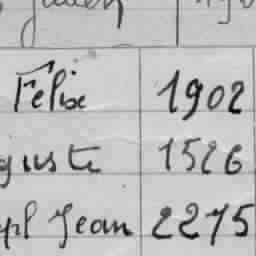 Félix 1902
guste 1526
Jean 2275